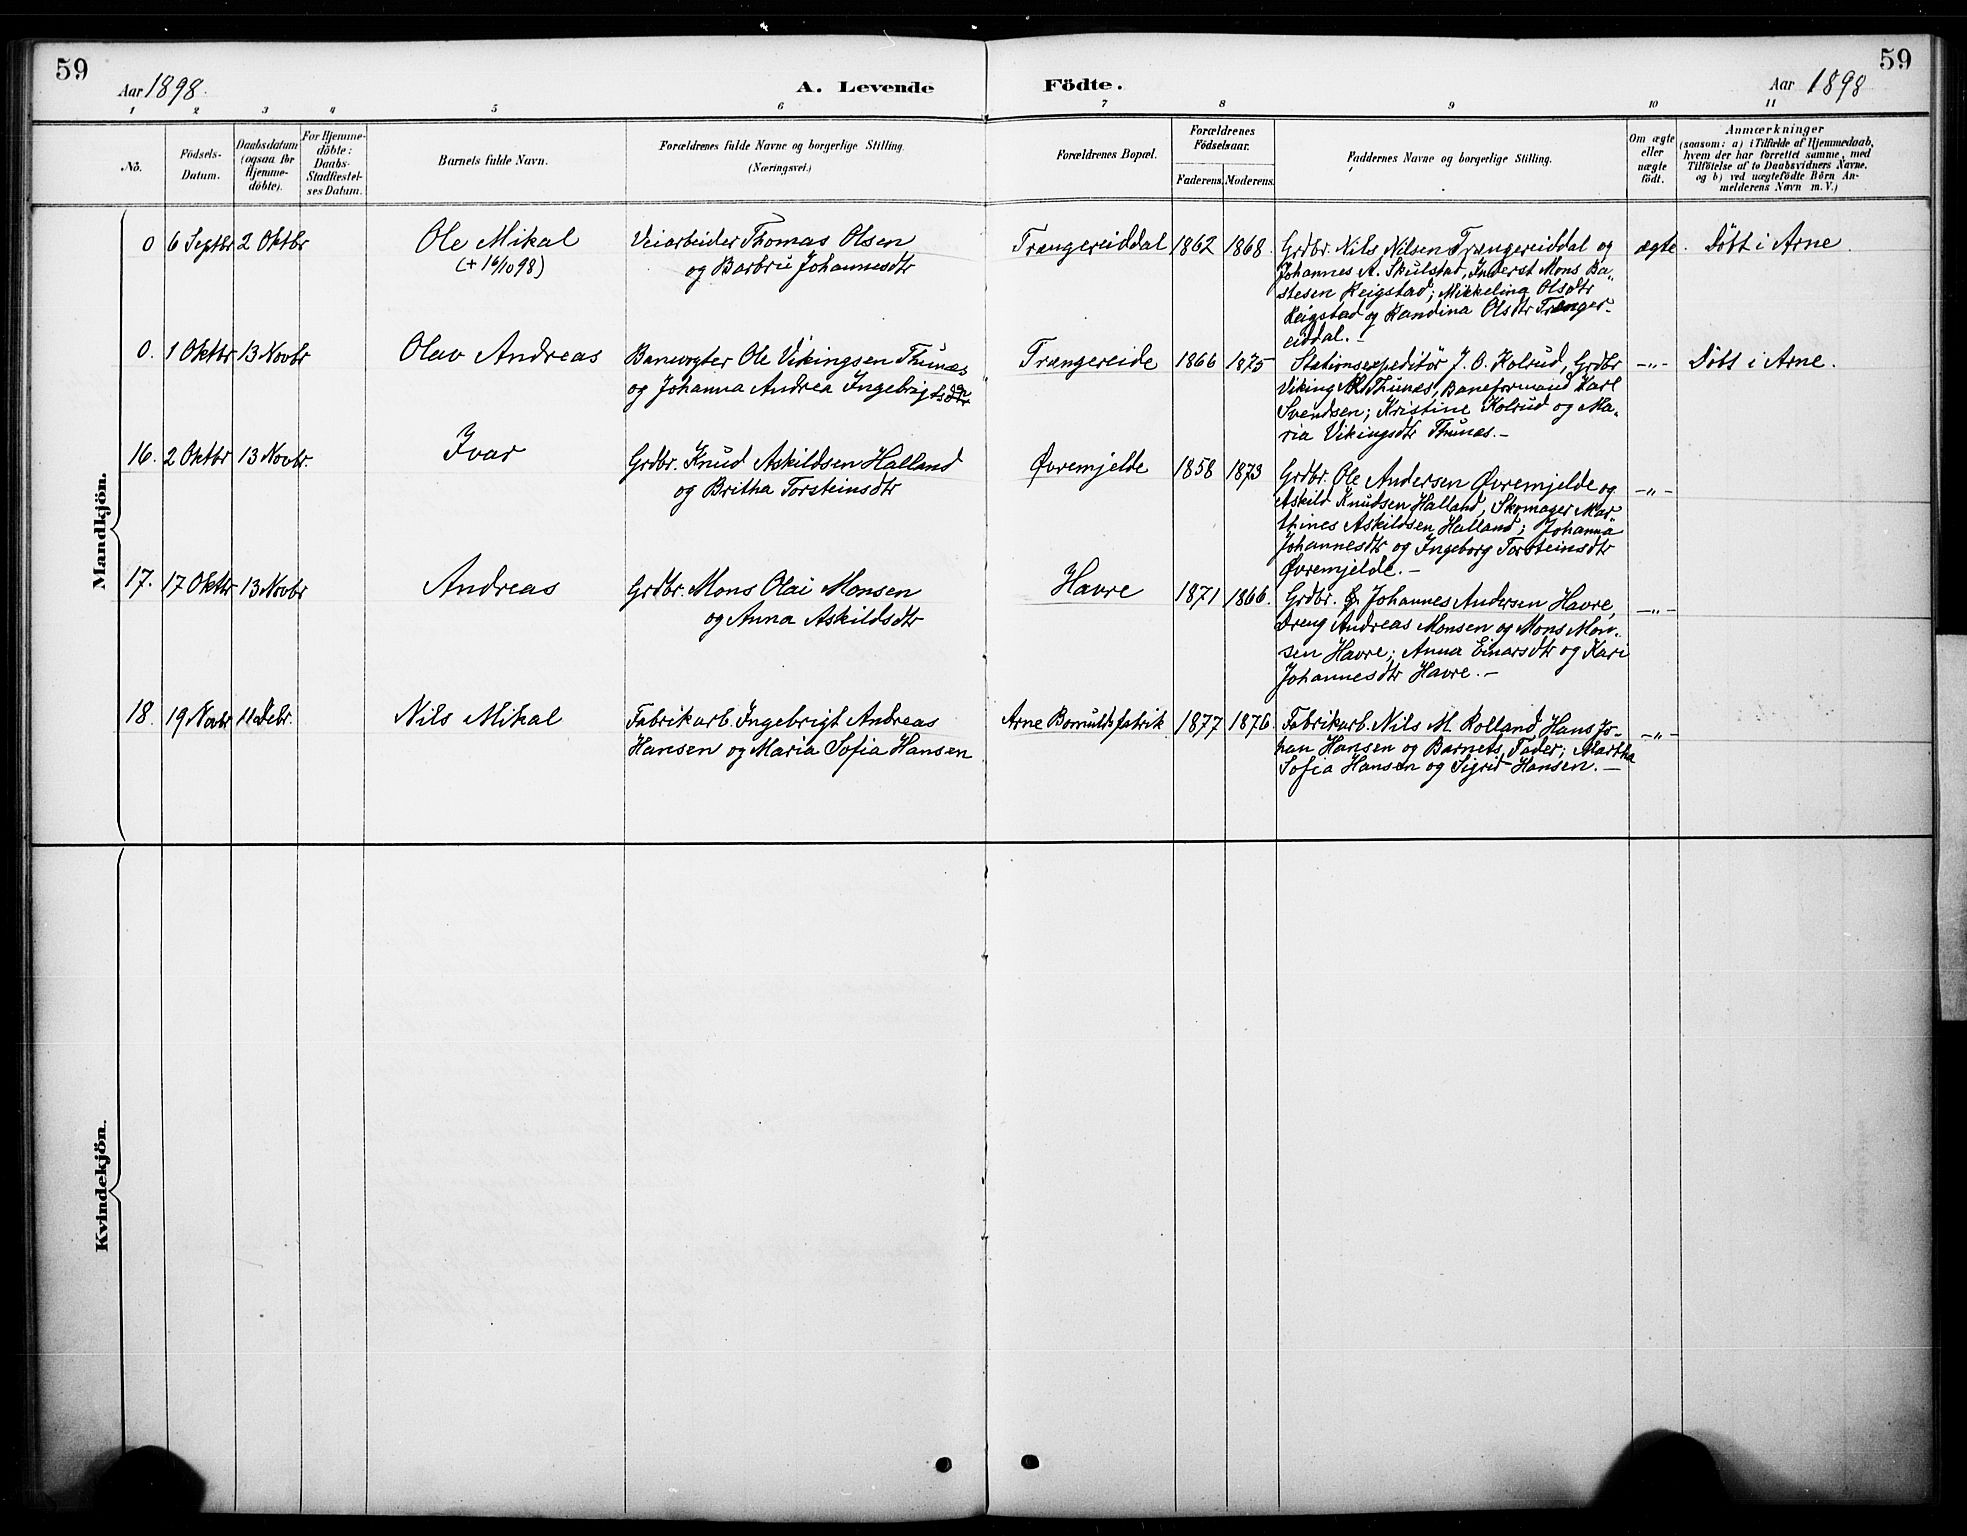 59
59
Aar 1898.
A. Levende Födte.
Aar 1898
1 2 3 4 5 6 7 8 9 10 11
No.
Födsels-
Datum.
Daabsdatum
(ogsaa for
Hjemme-
döbte).
For Hjemme-
döbte:
Daabs-
Stadfæstel-
ses Datum.
Barnets fulde Navn.
Forældrenes fulde Navne og borgerlige Stilling.
(Næringsvei.)
Forældrenes Bopæl.
Forældrenes
Födselsaar.
Faderens. Moderens.
Faddernes Navne og borgerlige Stilling.
Om ægte
eller
uægte
født.
Anmærkninger
(saasom: a) i Tilfælde af Hjemmedaab,
hvem der har forrettet samme, med
Tilföielse af to Daabsvidners Navne.
og b) ved uægtefödte Börn An-
melderens Navn m. V.)
Mandkjön.
0 6 Septbr 2 Oktbr
Ole Mikal
(+ 16/10 98)
Veiarbeider Thomas Olsen
og Barbru Johannesdtr
Trængereiddal 1862 1868.
Grdbr. Nils Nilsen Trængereiddal og
Johannes A. Skulstad, Inderst Mons Ba-
stesen Reigstad; Mikkeline Olsdtr
Reigstad og Kandina Olsdtr Trænger-
eiddal. -
ægte. Döbt i Arne.
0. 1 Oktbr 13 Novbr
Olav Andreas
Banevogter Ole Vikingsen Thunæs
og Johanna Andrea Ingebrigtsdtr
Trængereide 1866 1875
Stationsexpeditör J. O. Kolrud, Grdbr
Viking Thunæs, Baneformand Karl
Svendsen; Kristine Kolrud og Ma-
ria Vikingsdtr Thunæs. -
-"- Döbt i Arne.
16. 2 Oktbr 13 Novbr.
Ivar
Grdbr. Knud Askildsen Halland
og Britha Torsteinsdtr
Øvremjelde 1858 1873
Grdbr. Ole Andersen Øvremjelde og
Askild Knudsen Halland, Skomager Mar-
thines Askildsen Halland; Johanna
Johannesdtr og Ingeborg Torsteinsdtr
Øvremjelde. -
-"-
17. 17 Oktbr 13 Novbr
Andreas
Grdbr. Mons Olai Monsen
og Anna Askildsdtr
Havre 1871 1866.
Grdbr. Johannes Andersen Havre,
Dreng Andreas Monsen og Mons Mon-
sen Havre; Anna Einarsdtr og Kari
Johannesdtr Havre. -
-"-
18. 19 Novbr 11 Debr.
Nils Mikal
Fabrikarb. Ingebrigt Andreas
Hansen og Maria Sofia Hansen
Arne Bomuldsfabrik 1877 1876
Fabrikarb. Nils M. Rolland, Hans Jo-
han Hansen og Barnets Fader; Martha
Sofia Hansen og Sigrid Hansen. -
-"-
Kvindekjön.